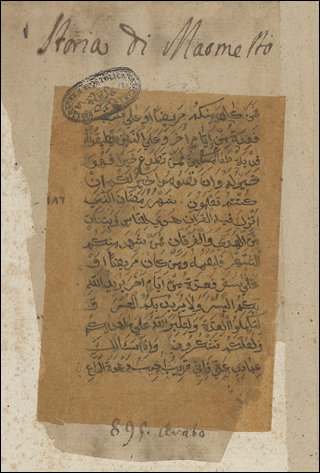 Storia di Maometto
فمن كان منكم مريضا او على سفر
فعدة من ايام اخر وعلى الذين يطيقونه
فدية طعام مسكين فمن تطوع خيرا فهو
خير له وان تصوموا خير لكم ان
كنتم تعلمون شهر رمضان الذي
انزل فيه القران هدى للناس وبينات
من الهدى والفرقان فمن شهد منكم
الشهر فليصمه ومن كان مريضا او
على سفر فعدة من ايام اخر يريد الله
بكم اليسر ولا يريد بكم العسر و
لتكملوا العدة ولتكبروا الله على ما هداكم
ولعلكم تشكرون واذا سالك
عبادي عني فاني قريب اجيب دعوة الداع
895. Arabo